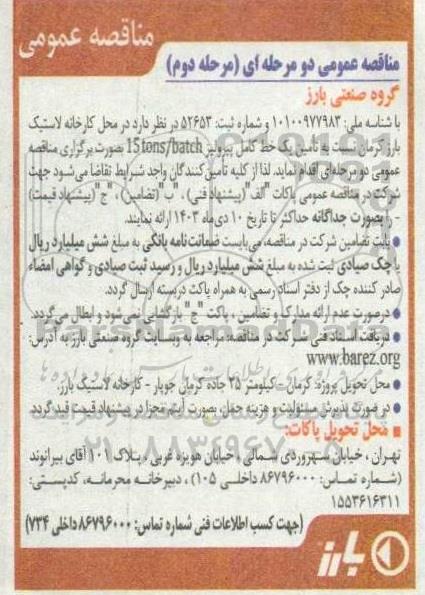 مناقصه عمومی
مناقصه عمومی دو مرحله ای (مرحله دوم)
گروه صنعتی بارز
با شناسه ملی: ۱۰۱۰۰۹۷۷۹۸۳ و شماره ثبت: ۵۲۶۵۳ در نظر دارد در محل کارخانه لاستیک
بارز کرمان نسبت به تأمین یک خط کامل پیرولیز 15tons/batch بصورت برگزاری مناقصه
عمومی دو مرحله‌ای اقدام نماید. لذا از کلیه تأمین‌کنندگان واجد شرایط تقاضا می‌شود جهت
شرکت در مناقصه عمومی پاکات "الف" (پیشنهاد فنی) ، "ب" (تضامین) ، "ج" (پیشنهاد قیمت)
- را بصورت جداگانه حداکثر تا تاریخ ۱۰ دی‌ماه ۱۴۰۳ ارائه نمایند.
● بابت تضامین شرکت در مناقصه، می‌بایست ضمانت‌نامه بانکی به مبلغ شش میلیارد ریال
یا چک صیادی ثبت شده به مبلغ شش میلیارد ریال و رسید ثبت صیادی و گواهی امضاء
صادر کننده چک از دفتر اسناد رسمی به همراه پاکت دربسته ارسال گردد.
● درصورت عدم ارائه مدارک و تضامین ، پاکت "ج" بازگشایی نمی‌شود و ابطال می‌گردد.
● دریافت اسناد فنی شرکت در مناقصه: مراجعه به وبسایت گروه صنعتی بارز به آدرس:
www.barez.org
● محل تحویل پروژه: کرمان - کیلومتر ۲۵ جاده کرمان جوپار - کارخانه لاستیک بارز.
● در صورت پذیرش مسئولیت و هزینه حمل، بصورت آیتم مجزا در پیشنهاد قیمت قید گردد.
■ محل تحویل پاکات:
تهران ، خیابان سهروردی شمالی ، خیابان هویزه غربی ، پلاک ۱۰۱ آقای بیرانوند
(شماره تماس: ۸۶۷۹۶۰۰۰ داخلی ۱۰۵) ، دبیرخانه محرمانه، کدپستی:
۱۵۵۳۶۱۶۳۱۱
(جهت کسب اطلاعات فنی شماره تماس: ۸۶۷۹۶۰۰۰ داخلی ۷۳۴)
بارز
ParsNamadData
۰۲۱-۸۸۳۴۹۶۷۰